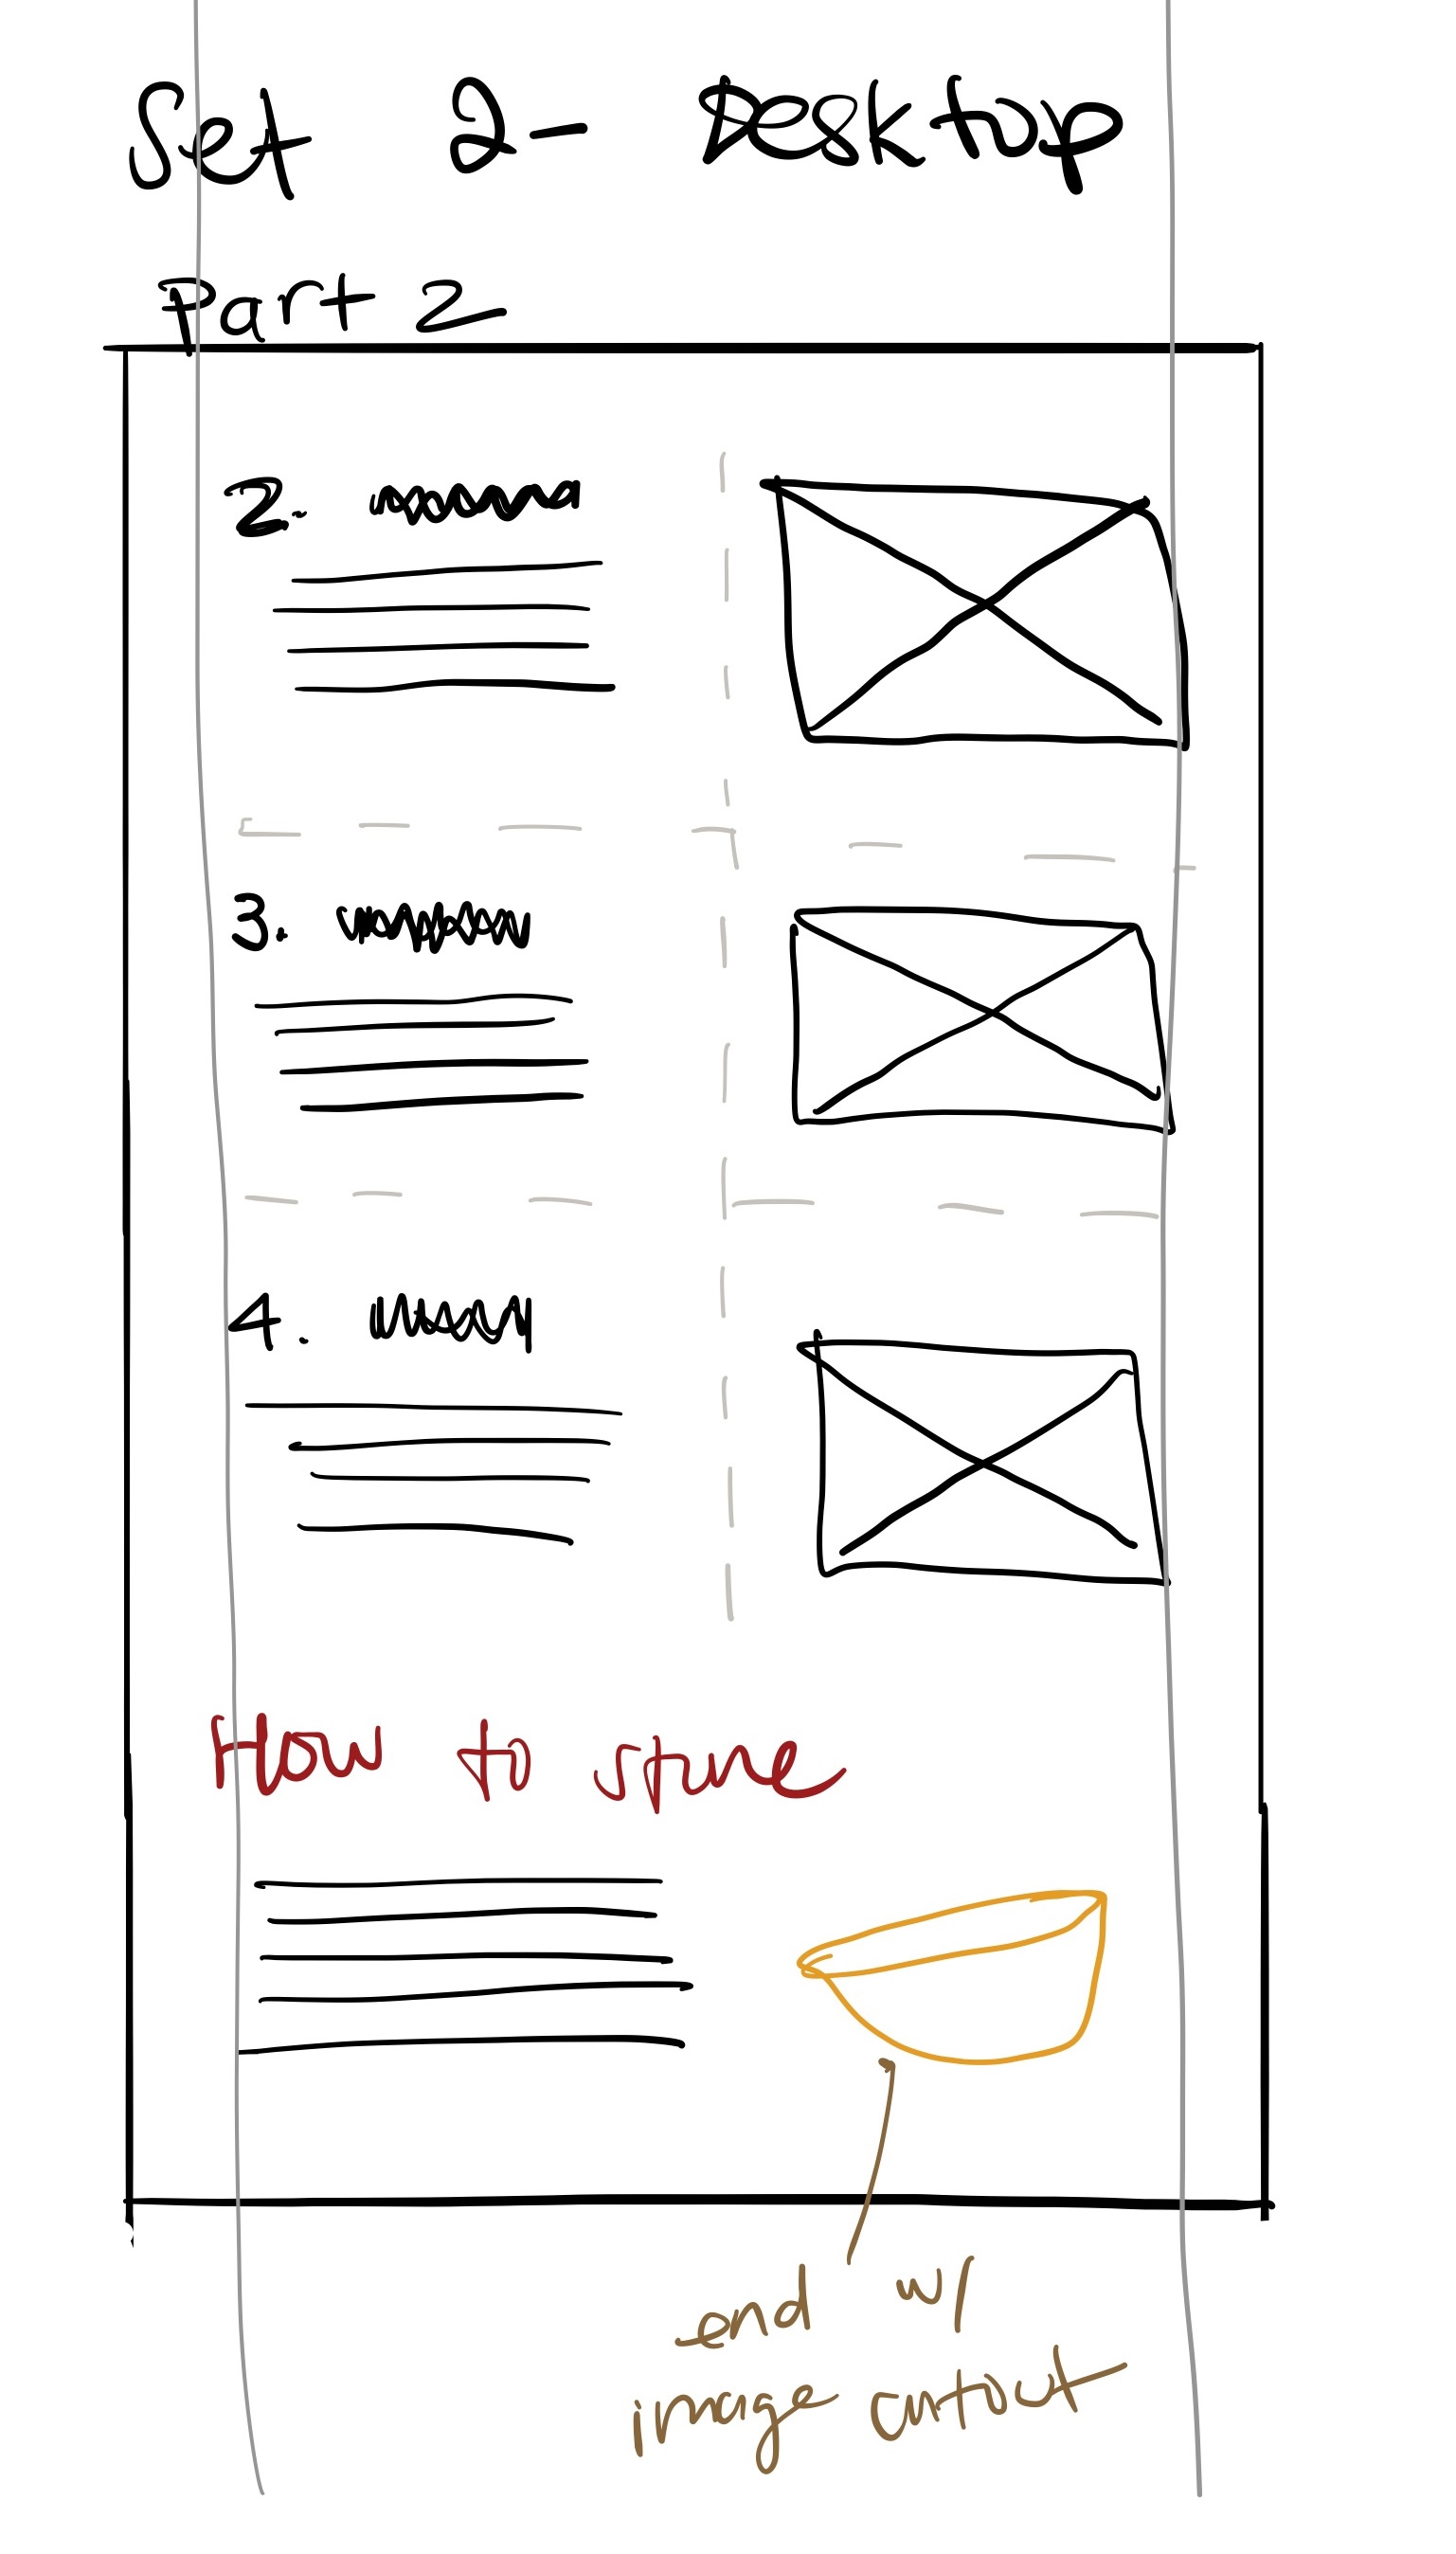 Set 2- Desktop
Part 2
2.
3.
4.
How to store
end w/
image cutout